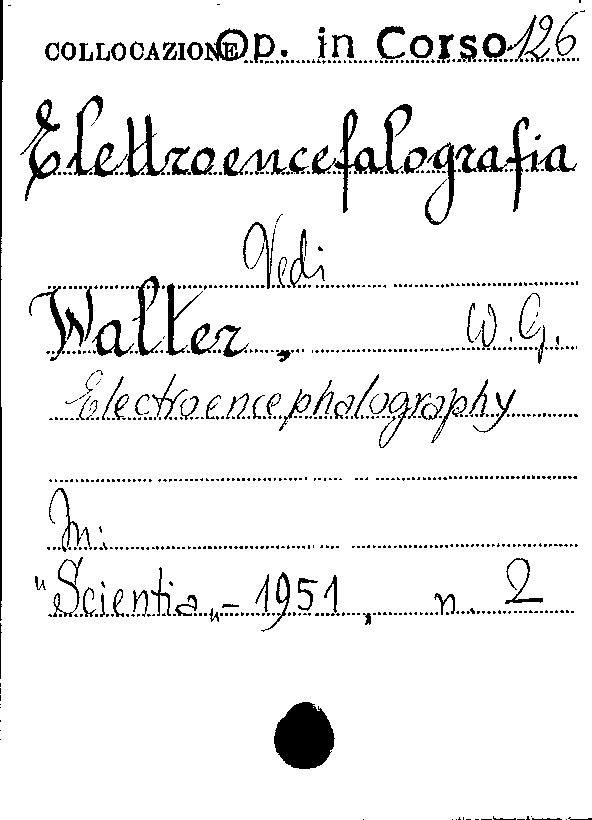 COLLOCAZIONE Op. in Corso 126
Elettroencefalografia
Vedi
Walter, W. G.
Electroencephalography
In:
"Scientia„ - 1951, n. 2